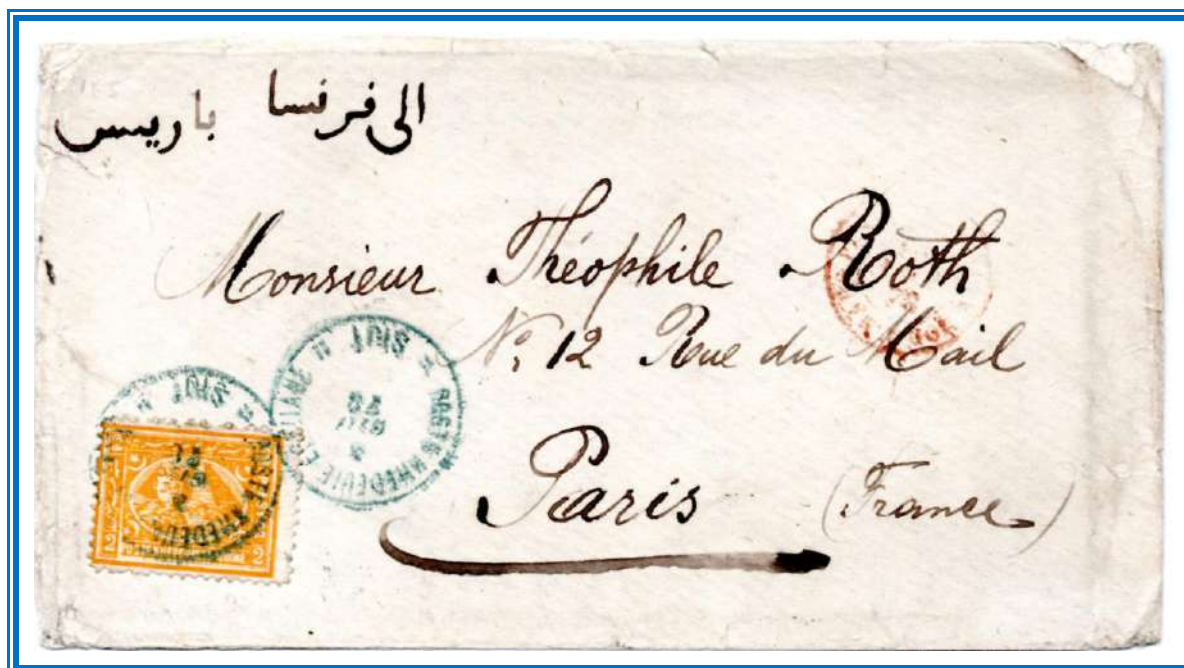 الى فرنسا باريس
Monsieur Théophile Roth
No. 12 Rue du Mail
Paris (France)
POSTE KHEDEUIE EGIZIANE SIUT
POSTE KHEDEUIE SIUT
2 2